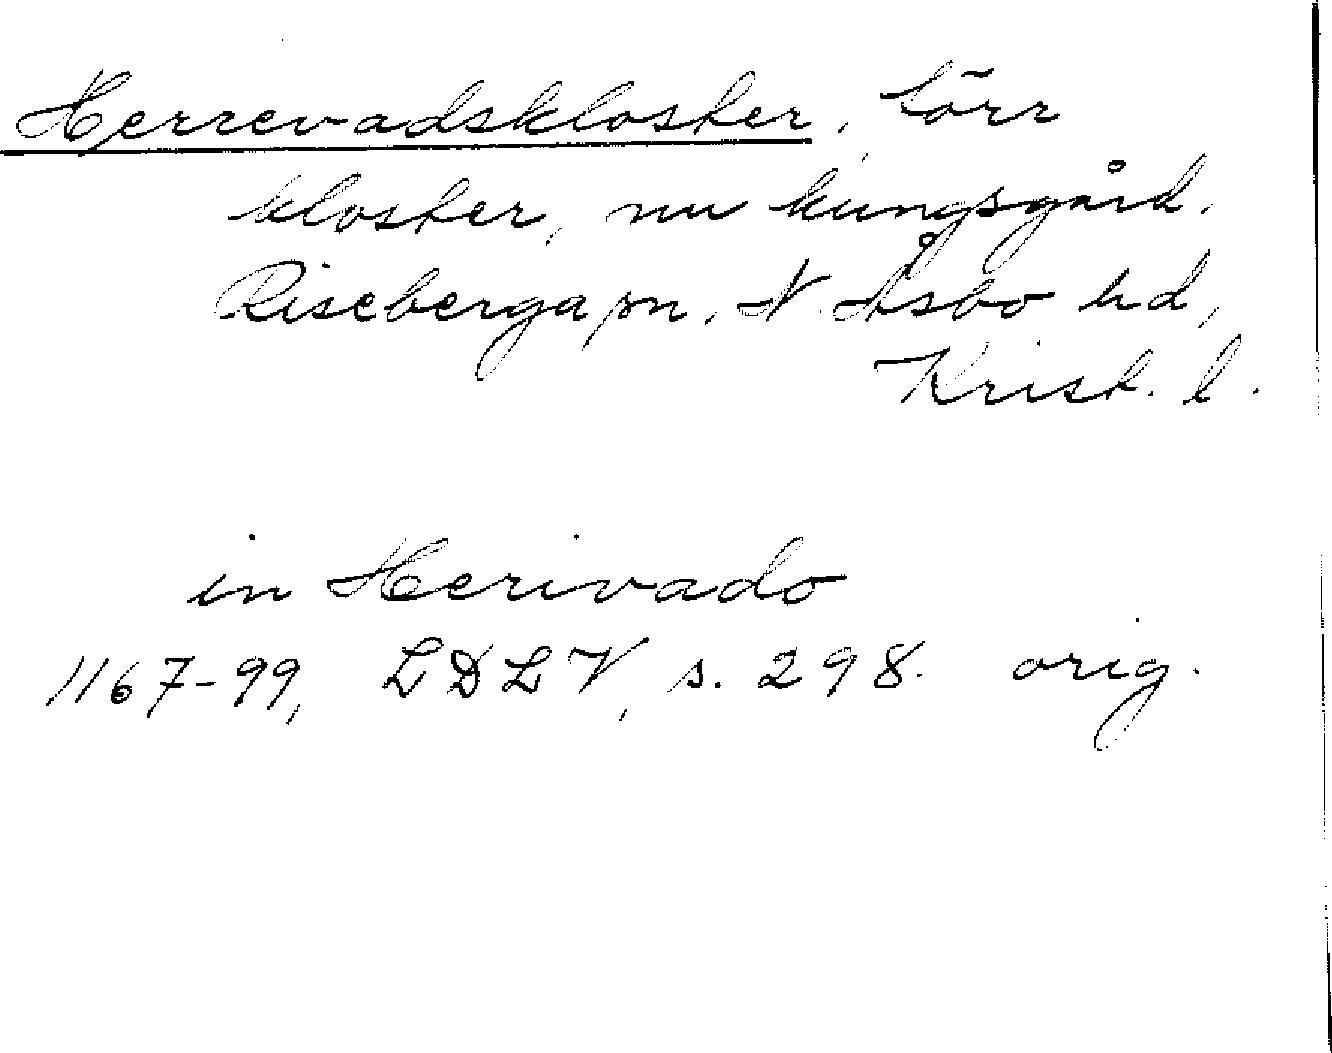 Herrevadskloster, förr
kloster, nu kungsgård.
Riseberga sn, N. Åsbo hd,
Krist. l.
in Herivado
1167-99, LDLV, s. 298. orig.